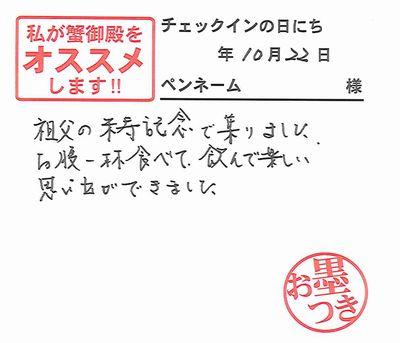 私が蟹御殿を
オススメ
します!!
チェックインの日にち
年 10月 22日
ペンネーム 様
祖父の米寿記念で集りました
お腹一杯食べて、飲んで楽しい
思い出ができました
お墨つき